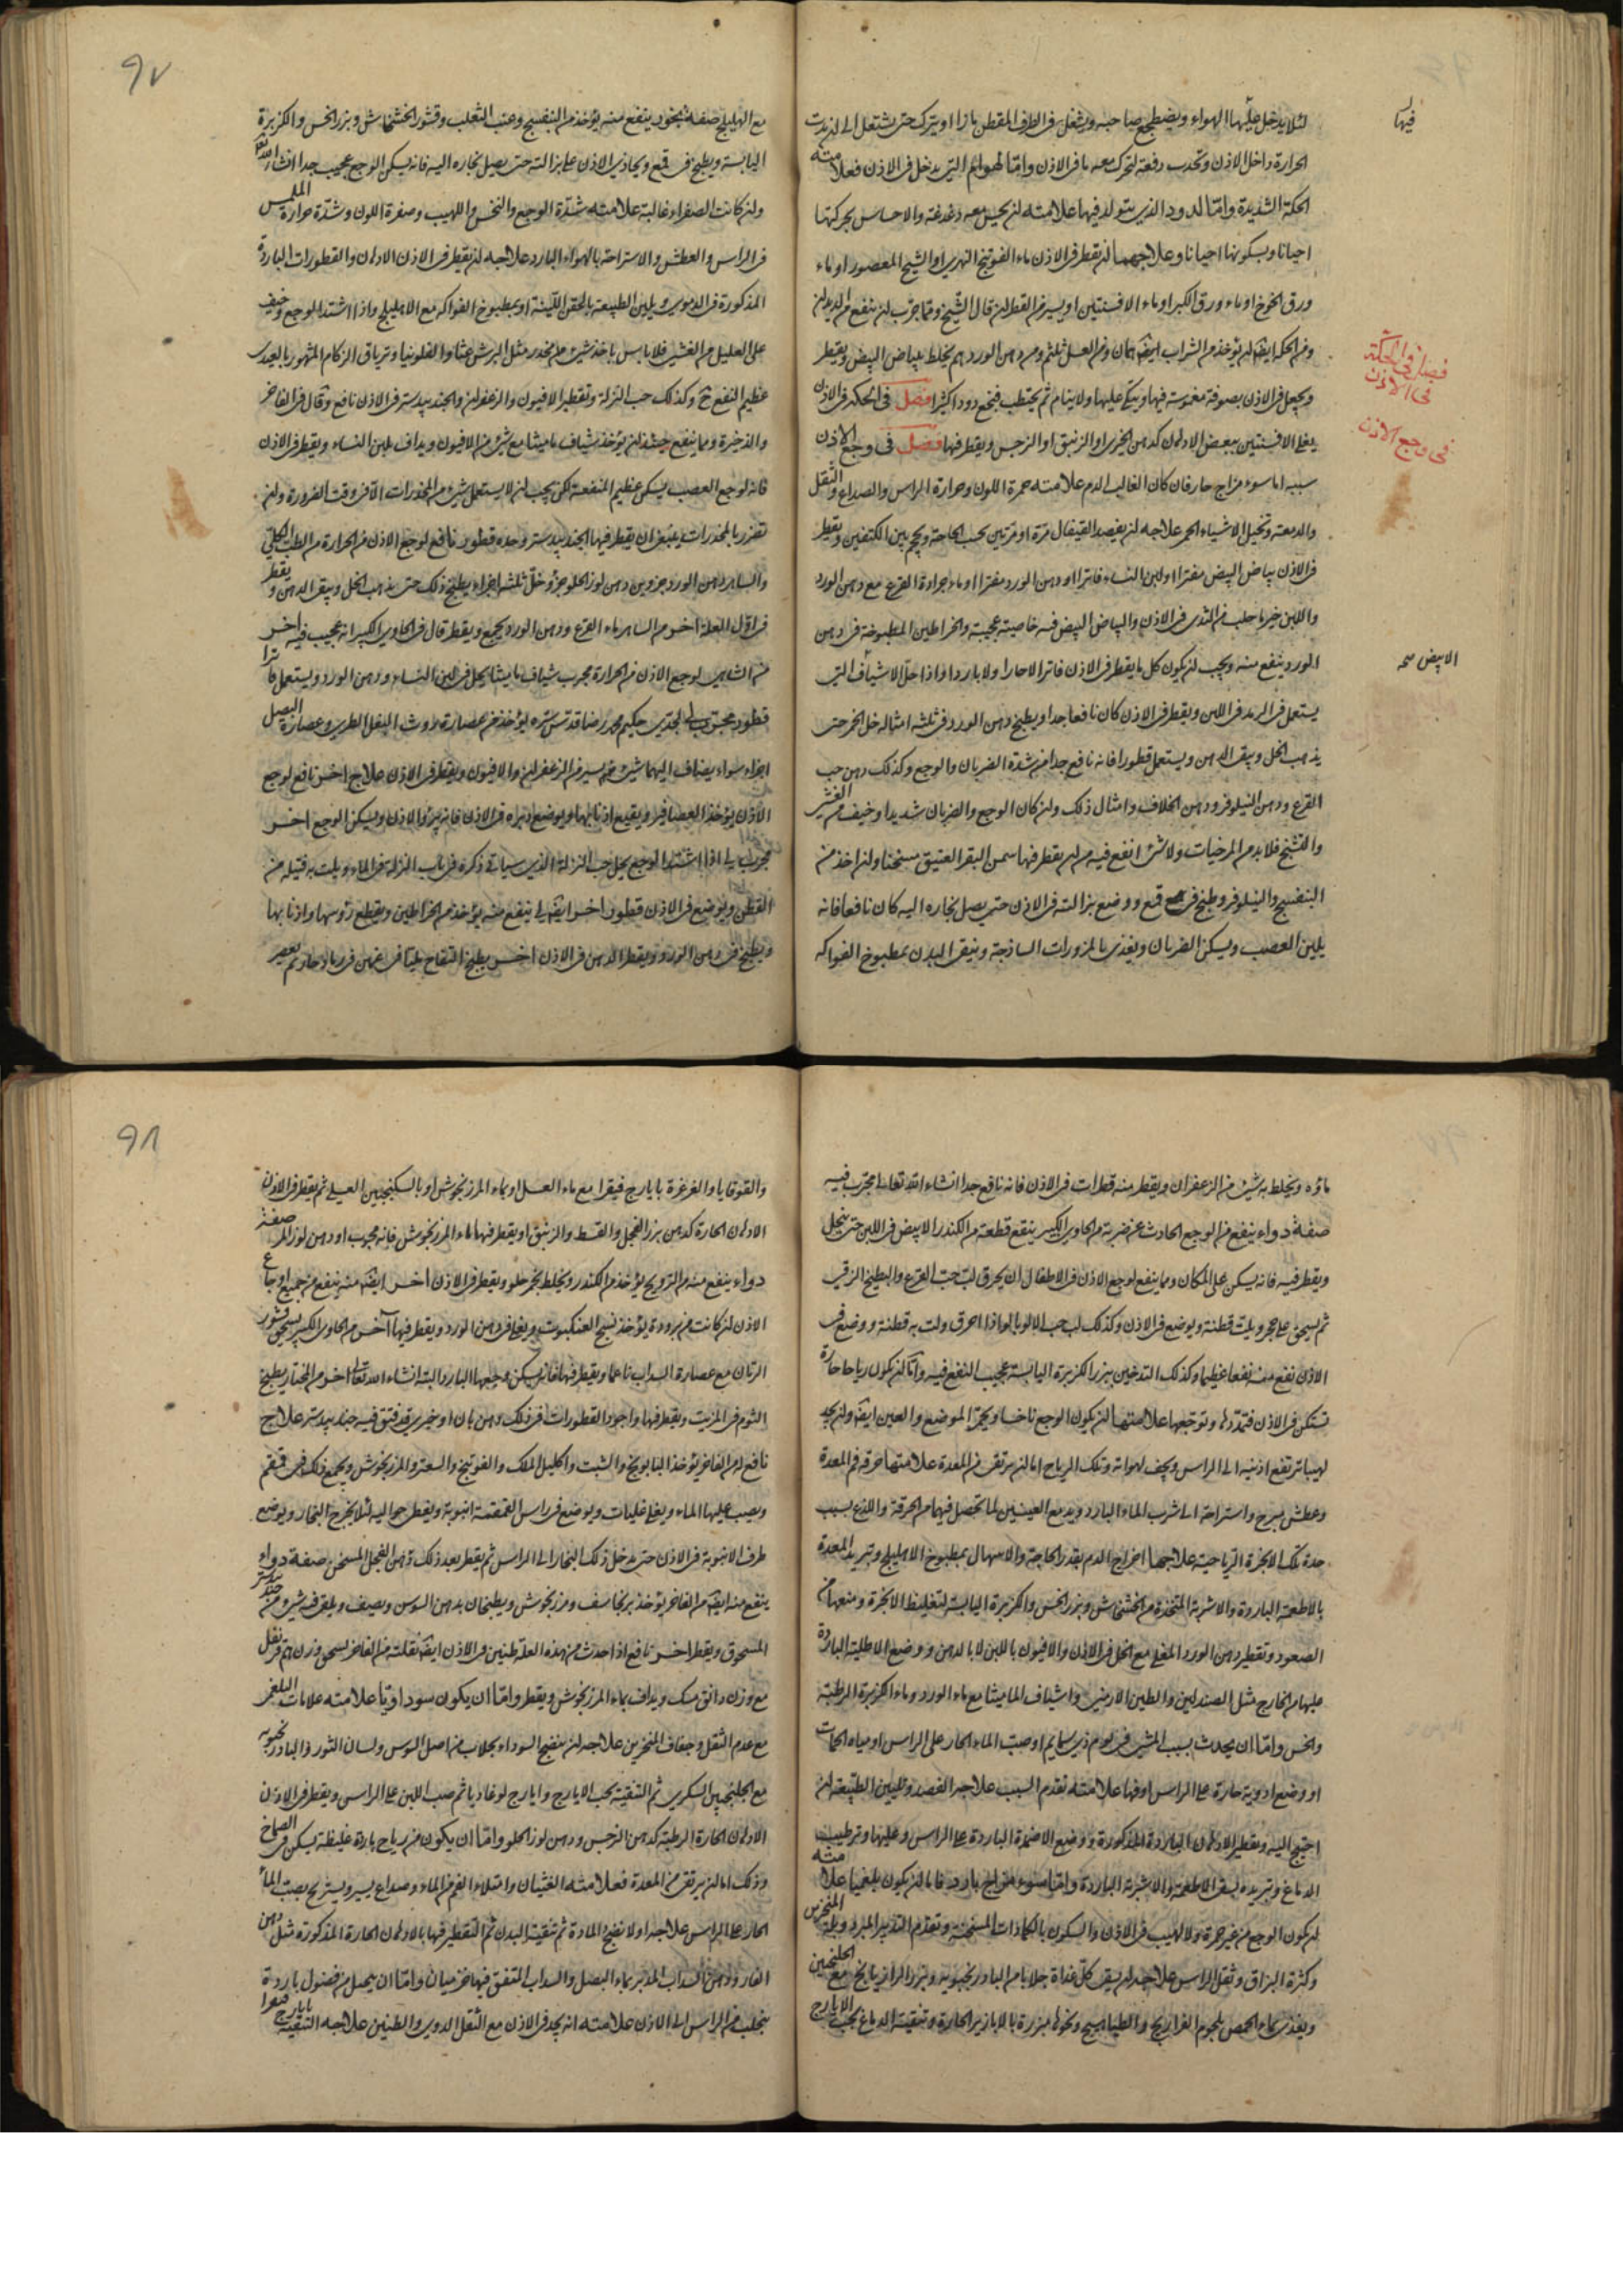 لئلا يدخل عليها الهواء ويضطجع صاحبه ويشعل في الطرف المقطن نارا ويترك حتى يشتعل الى ان يدب
فيها
الحرارة داخل الاذن وتجذب دفعة لتحرك معه ما في الاذن واما الهوام التي يدخل في الاذن فعلامته
الحكة الشديدة واما الدود الذي يتولد فيها علامته ان يحس معه دغدغة والاحساس بحركتها
احيانا وبسكونها احيانا وعلاجهما ان يقطر في الاذن ماء الفوتنج النهري او الشيح المعصور او ماء
ورق الخوخ او ماء ورق الكبر او ماء الافسنتين او يسير من القطران قال الشيخ ومما جرب لن ينفع من الديدان
ومن الحكة ايضا ان يؤخذ من الشراب ومن العسل ثلثه ومن دهن الورد يخلط ببياض البيض ويقطر
فصل في الحكة
في الاذن
ويجعل في الاذن بصوفة مغموسة فيها ويتكي عليها ولا ينام ثم يجتذب فيخرج دود اكثيرا فصل في الحكة في الاذن
في وجع الاذن
يغلي الافسنتين ببعض الادهان كدهن الخيري او الزنبق او النرجس ويقطر فيها فصل في وجع الاذن
سببه اما سوء مزاج حار فان كان الغالب الدم علامته حمرة اللون وحرارة الراس والصداع والثقل
والدمعة وتخيل الاشياء الحمر علاجه ان يفصد القيفال مرة او مرتين بحسب الحاجة ويحجم بين الكتفين ويقطر
في الاذن بياض البيض مفترا او لبن النساء فاترا او دهن الورد مفترا او ماء جرادة القرع مع دهن الورد
واللبن خير ما حلب من الثدي في الاذن والبياض البيض فيه خاصية عجيبة والخراطين المطبوخة في دهن
الابيض صح
الورد ينفع منه ويجب ان يكون كل ما يقطر في الاذن فاترا لا حارا ولا باردا واذا حل الاشياف التي
يستعمل في الرمد في اللبن ويقطر في الاذن كان نافعا جدا ويطبخ دهن الورد في ثلثة امثاله خل الخمر حتى
يذهب الخل ويبقى الدهن ويستعمل قطورا فانه نافع جدا من شدة الضربان والوجع وكذلك دهن حب
القرع ودهن النيلوفر ودهن الخلاف وامثال ذلك وان كان الوجع والضربان شديدا وخيف من الغشي
والتشنج فلا بد من المرخيات ولا شئ انفع فيه من ان يقطر فيها سمن البقر العتيق مسخنا وان اخذ من
البنفسج والنيلوفر وطبخ في قمع ووضع بزالته في الاذن حتى يصل بخاره اليه كان نافعا فانه
يلين العصب ويسكن الضربان ويغذى بالمزورات الساذجة وينقى البدن بمطبوخ الفواكه
٩٧
مع الهليلج صفة بخور ينفع منه يؤخذ من البنفسج وعنب الثعلب وقشور الخشخاش وبزر الخس والكزبرة
اليابسة ويطبخ في قمع ويحاذي الاذن على بزالته حتى يصل بخاره اليه فانه يسكن الوجع عجيب جدا انشاء الله تعالى
وان كانت الصفراء غالبة علامته شدة الوجع والنخس واللهيب وصفرة اللون وشدة حرارة الملمس
في الراس والعطش والاستراحة بالهواء البارد علاجه ان يقطر في الاذن الادهان والقطورات الباردة
المذكورة في الدموي ويلين الطبيعة بالحقن اللينة او بمطبوخ الفواكه مع الاهليلج واذا اشتد الوجع وخيف
على العليل من الغشي فلا باس باخذ شئ من مخدر مثل البرشعثا والفلونيا وترياق الزكام المشهور بالجدي
عظيم النفع وكذلك حب النزلة وتقطير الافيون والزعفران والجندبيدستر في الاذن نافع وقال في الفاخر
والذخيرة ومما ينفع حينئذ ان يؤخذ شياف ماميثا مع شئ من الافيون ويداف بلبن النساء ويقطر في الاذن
فانه لوجع العصب يسكن عظيم المنفعة لكن يجب ان لا يستعمل شئ من المخدرات الا في وقت الضرورة وان
تضرر بالمخدرات ينبغي ان يقطر فيها الجندبيدستر وحده قطور نافع لوجع الاذن من الحرارة من الطب الكلي
والساهر دهن الورد جزوين دهن لوز الحلو جزؤ خل ثلثة اجزاء يطبخ ذلك حتى يذهب الخل ويبقى الدهن ويقطر
في اول العلة اخر من الساهر ماء القرع ودهن الورد يجمع ويقطر قال في الحاوي الكبير انه عجيب فيه اخر
من الشاهي لوجع الاذن من الحرارة مجرب شياف ماميثا يحل في لبن النساء ودهن الورد ويستعمل فاترا
قطور مجرب لجدي حكيم محمد رضا قدس سره يؤخذ من عصارة روث البغل الطري وعصارة البصل
اجزاء سواء يضاف اليهما شئ يسير من الزعفران والافيون ويقطر في الاذن علاج اخر نافع لوجع
الاذن يؤخذ العصافير ويقطع اذنابها ويوضع ادباره في الاذن فانه يبرؤ الاذن ويسكن الوجع اخر
مجرب لي اذا اشتد الوجع يحل حب النزلة الذي سيأتي ذكره في باب النزلة في الماء ويلت به فتيلة من
القطن ويوضع في الاذن قطور اخر ايضا لي ينفع منه يؤخذ من الخراطين ويقطع رؤسها واذنابها
ويطبخ في دهن الورد ويقطر الدهن في الاذن اخر يطبخ التفاح في رماد حار ثم يعصر
ماؤه ويخلط به شئ من الزعفران ويقطر منه قطرات في الاذن فانه نافع جدا انشاء الله تعالى مجرب فيه
صفة دواء ينفع من الوجع الحادث عن ضربة من الحاوي الكبير ينقع قطعة من الكندر الابيض في اللبن حتى ينحل
ويقطر فيه فانه يسكن على المكان ومما ينفع لوجع الاذن في الاطفال ان يحرق لب حب القرع والبطيخ الرقي
ثم يسحق على حجر ويلت قطنة ويوضع في الاذن وكذلك لب حب الالوبالو اذا احرق ولت به قطنة ووضع في
الاذن نفع منه نفعا عظيما وكذلك التدخين ببزر الكزبرة اليابسة عجيب النفع فيه واما ان يكون رياحا حارة
تستكن في الاذن فتمددها وتوجعها علامتها ان يكون الوجع ناخسا ويحمر الموضع والعين ايضا وان يجد
لهيبا ترتفع اذنيه الى الراس ويجف لهواته وتلك الرياح اما ان يرتقي من المعدة علامتها حرقة فم المعدة
وعطش مبرح واستراحة الى شرب الماء البارد ويدمع العينين لما تحصل فيهما من الحرقة واللذع بسبب
حدة تلك الابخرة الرياحية علاجها اخراج الدم بقدر الحاجة والاسهال بمطبوخ الاهليلج وتبريد المعدة
بالاطعمة الباردة والاشربة المتخذة من الخشخاش وبزر الخس والكزبرة اليابسة لتغليظ الابخرة ومنعها من
الصعود وتقطير دهن الورد المغلي مع الخل في الاذن والافيون باللبن لا بالدهن ووضع الاطلية الباردة
عليها من الخارج مثل الصندلين والطين الارمني واشياف الماميثا مع ماء الورد وماء الكزبرة الرطبة
والخس واما ان يحدث بسبب المشي في يوم ذي سمايم او صب الماء الحار على الراس او مياه الحمات
او وضع ادوية حارة على الراس او فيها علامته تقدم السبب علاجه الفصد وتليين الطبيعة ان
احتيج اليه وتقطير الادهان الباردة المذكورة ووضع الاضمدة الباردة على الراس وعليها وترطيب
الدماغ وتبريده بسقي الاطعمة والاشربة الباردة واما سوء مزاج بارد فاما ان يكون بلغميا علامته
ان يكون الوجع من غير حمرة ولا لهيب في الاذن والسكون بالكمادات المسخنة وتقدم التدبير المبرد وبلة المنخرين
وكثرة البزاق وثقل الراس علاجه ان يسقى كل غداة جلابا من البادرنجبوية وبزر الرازيانج مع الجلنجبين
ويغذى بماء الحمص بلحوم الفراريج والطياهيج ونحوها مبزرة بالابازير الحارة وتنقية الدماغ بحب الايارج
٩٨
والقوقايا والغرغرة بايارج فيقرا مع ماء العسل او بماء المرزنجوش او بالسكنجبين العسلي ثم يقطر في الاذن
الادهان الحارة كدهن بزر الفجل والقسط والزنبق او يقطر فيها ماء المرزنجوش فانه مجرب او دهن لوز المر صفة
دواء ينفع منه من الترويح يؤخذ من الكندر ويخلط بخمر حلو ويقطر في الاذن اخر ايضا منه ينفع من جميع اوجاع
الاذن ان كانت من برودة يؤخذ نسج العنكبوت ويغلى في دهن الورد ويقطر فيها اخر من الحاوي الكبير يسحق قشور
الرمان مع عصارة السداب ناعما ويقطر فيها فانه يسكن وجعها البارد البتة انشاء الله تعالى اخر من المختار يطبخ
الثوم في الزيت ويقطر فيها واجود القطورات في ذلك دهن بان او خيري قد فتق فيه جندبيدستر علاج
نافع له من الفاخر يؤخذ البابونج والشبت واكليل الملك والفوتنج والسعتر والمرزنجوش ويجمع ذلك في قمقم
ويصب عليها الماء ويغلى غليات ويوضع في راس القمقمة انبوبة ويغطى حواليه لئلا يخرج البخار ويوضع
طرف الانبوبة في الاذن حتى يدخل ذلك البخار الى الراس ثم يقطر بعد ذلك دهن الفجل المسخن صفة دواء
ينفع منه ايضا من الفاخر يؤخذ برنجاسف ومرزنجوش ويطبخان بدهن السوسن ويصفى ويلقى فيه شئ من جندبيدستر
المسحوق ويقطر اخر نافع اذا حدث من هذه العلة طنين في الاذن ايضا نقلته من الفاخر يسحق وزن درهم قرنفل
مع وزن دانق مسك ويداف بماء المرزنجوش ويقطر واما ان يكون سوداويا علامته علامات البلغمي
مع عدم الثقل وجفاف المنخرين علاجه ان ينضج السوداء بجلاب من اصل السوس ولسان الثور والبادرنجبوية
مع الجلنجبين السكري ثم التنقية بحب الايارج وايارج لوغاذيا ثم صب اللبن على الراس ويقطر في الاذن
الادهان الحارة الرطبة كدهن النرجس ودهن لوز الحلو واما ان يكون من رياح باردة غليظة يسكن في الصماخ
وذلك اما ان يرتقي من المعدة فعلامته الغثيان وامتلاء الفم من الماء وصداع يسير ويستريح بصب الماء
الحار على الراس علاجه اولا نضج المادة ثم تنقية البدن ثم التقطير فيها بالادهان الحارة المذكورة مثل دهن
الغار ودهن السداب المدبر بماء البصل والسداب المتفق فيها فرفيان واما ان يحصل من فضول باردة
ينجلب من الراس الى الاذن علامته انه يجد في الاذن مع الثقل الدوي والطنين علاجه التنقية بايارج فيقرا